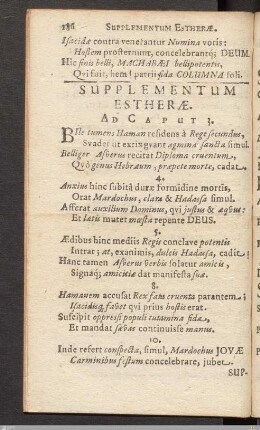 186 SUPPLEMENTUM ESTHERÆ.
Isacidæ contra venerantur Numina votis:
Hostem prosternunt, concelebrantq; DEUM.
Hic finis belli, MACHABÆI bellipotentis,
Qui fuit, hem! patrii fida COLUMNA soli.
SUPPLEMENTUM
ESTHERÆ.
AD CAPUT 3.
BIle tumens Haman residens à Rege secundus,
Svadet ut extingvant agmina sancta simul.
Belliger Asverus recitat Diploma cruentum,
Qvô genus Hebræum, præpete morte, cadat.
4.
Anxius hinc subitâ duræ formidine mortis,
Orat Mardochus, clara & Hadassa simul.
Afferat auxilium Dominus, qvi justus & æqvus:
Et lætis mutet mœsta repente DEUS.
5.
Ædibus hinc mediis Regis conclave potentis
Intrat; at, exanimis, dulcis Hadassa, cadit.
Hanc tamen Asverus verbis solvit amicis,
Signaq; amicitiæ dat manifesta suæ.
8.
Hamanem accusat Rex fans cruenta parantem;
Isacidisq; favet qvi prius hostis erat.
Suscipit oppressi populi tutamina fida,
Et mandat sævas continuisse manus.
10.
Inde refert conspecta, simul, Mardochus JOVÆ
Carminibus festum concelebrare, jubet.
SUP-